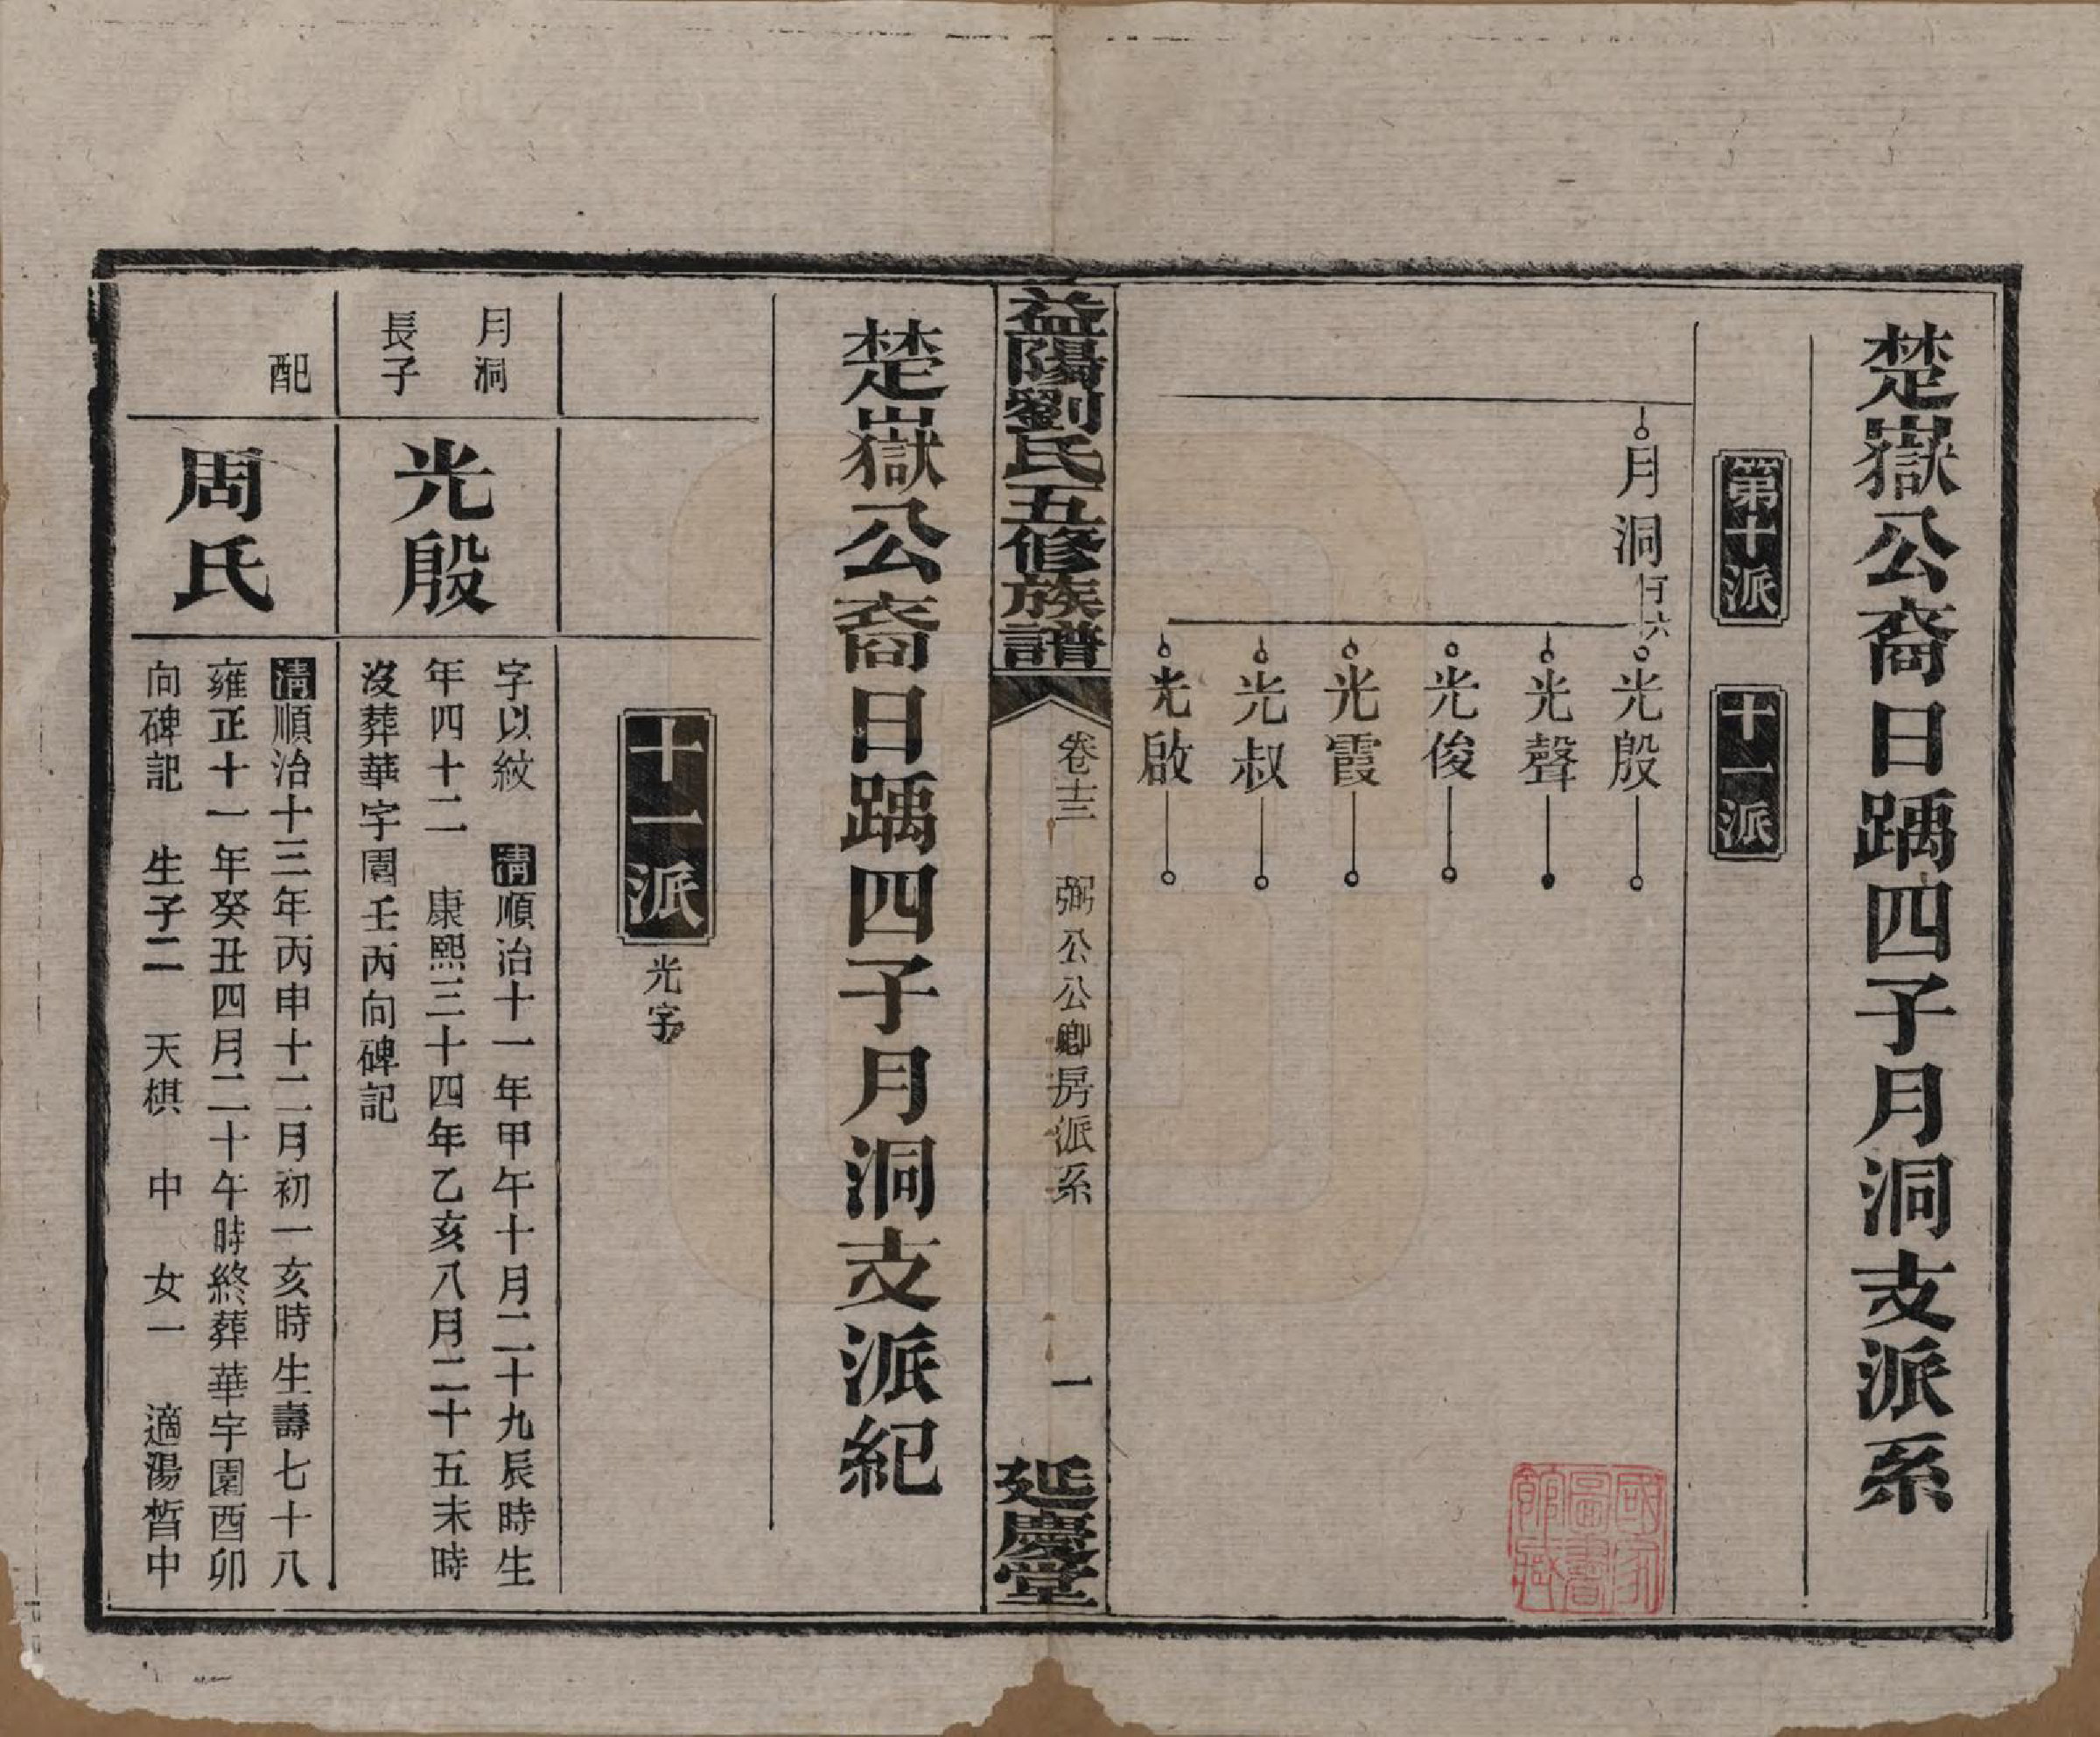 楚嶽公裔日踽四子月洞支派系
第十派
十一派
月洞
光殷
光聲
光俊
光霞
光叔
光啟
益陽劉氏五修族譜
卷十三
弼公公卿房派系
一
延慶堂
楚嶽公裔日踽四子月洞支派紀
十一派
光字
月洞
長子
光殷
字以紋 清順治十一年甲午十月二十九辰時生
年四十二 康熙三十四年乙亥八月二十五未時
沒葬華字園壬丙向碑記
配
周氏
清順治十三年丙申十二月初一亥時生壽七十八
雍正十一年癸丑四月二十午時終葬華宇園酉卯
向碑記 生子二 天棋 中 女一 適湯晳中
國家圖書館藏